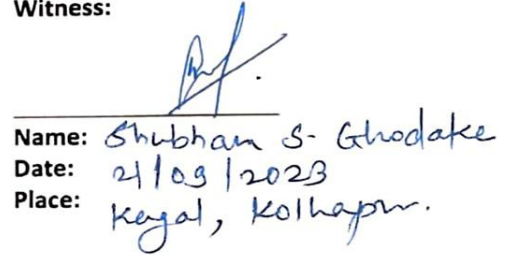 Witness:
Name: Shubham S. Ghodake
Date: 21/09/2023
Place: Kagal, Kolhapur.